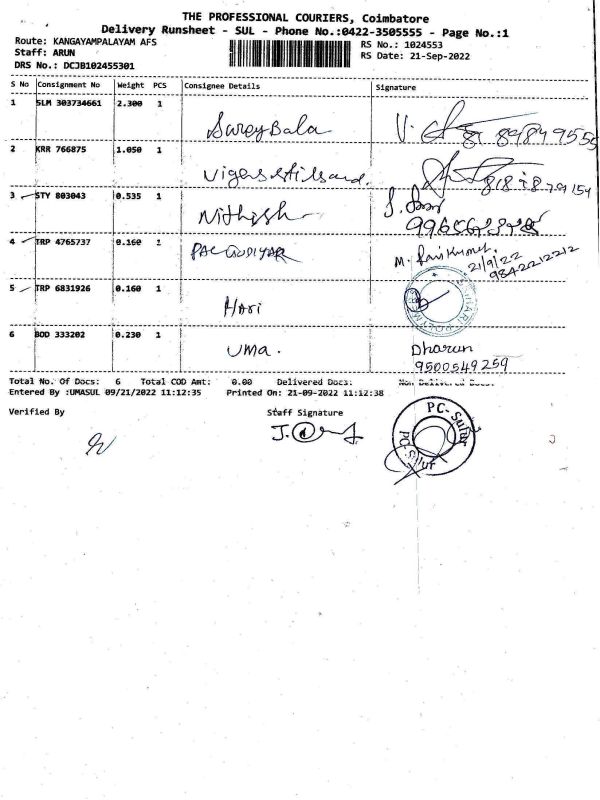 THE PROFESSIONAL COURIERS, Coimbatore
Delivery Runsheet - SUL - Phone No.:0422-3505555 - Page No.:1
Route: KANGAYAMPALAYAM AFS
RS No.: 1024553
Staff: ARUN
RS Date: 21-Sep-2022
DRS No.: DCJB102455301
S No Consignment No Weight PCS Consignee Details Signature
1 SLM 303734661 2.300 1
2 KRR 766875 1.050 1
3 STY 803043 0.535 1 Nithish
4 TRP 4765737 0.160 1
21/9/22
9842212212
5 TRP 6831926 0.160 1 Hari
6 BOD 333202 0.230 1 Uma. Dharun
9500549259
Total No. Of Docs: 6 Total COD Amt: 0.00 Delivered Docs: Non Delivered Docs:
Entered By :UMASUL 09/21/2022 11:12:35 Printed On: 21-09-2022 11:12:38
Verified By Staff Signature
PC-Sulur
PC-Sulur